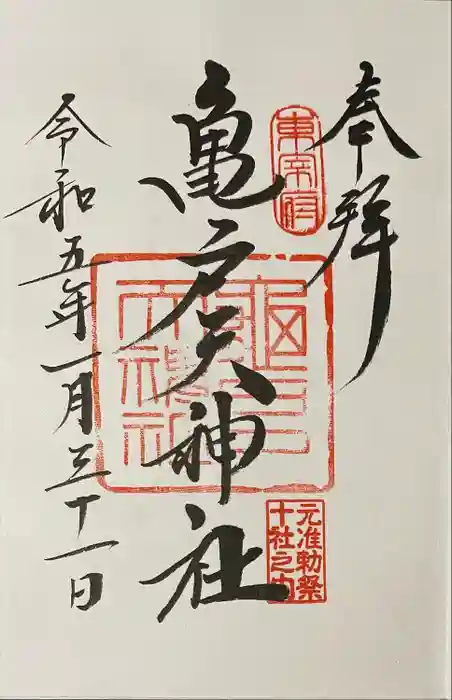 奉拝
東宰府
亀戸天神社
亀戸天神社
元准勅祭
十社之内
令和五年一月三十一日